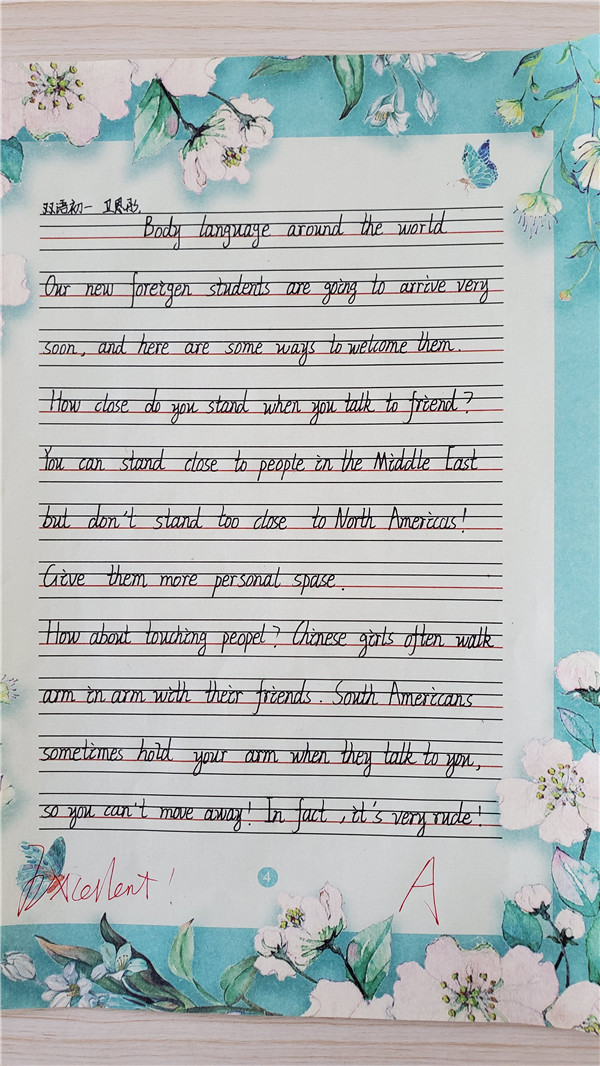 双语初一 卫恩彤
Body language around the world
Our new foreigen students are going to arrive very
soon, and here are some ways to welcome them.
How close do you stand when you talk to friend?
You can stand close to people in the Middle East
but don't stand too close to North Americas!
Give them more personal spase.
How about touching peopel? Chinese girls often walk
arm in arm with their friends. South Americans
sometimes hold your arm when they talk to you,
so you can't move away! In fact, it's very rude!
Excellent!
4
A